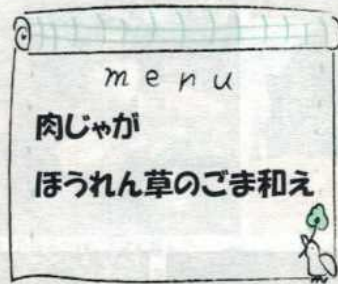 menu
肉じゃが
ほうれん草のごま和え